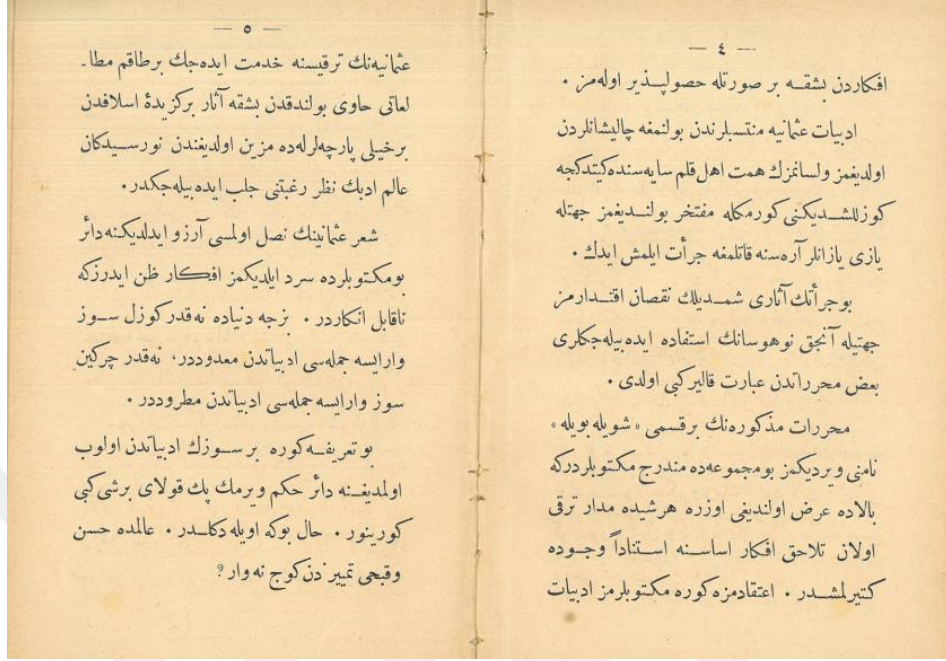 — ٤ —
افكاردن بشقـه بر صورتله حصولپـذير اوله‌مز .
ادبيات عثمانيه منتسبلرندن بولنمغه چاليشانلردن
اولديغمز ولسانمزك همت اهل قلم سايه‌سنده كيتدكجه
كوزللشـديكنى كورمكله مفتخر بولنـديغمز جهتله
يازى يازانلر آره‌سنه قاتلمغه جرأت ايلمش ايدك .
بو جرأتك آثارى شمـديلك نقصان اقتـدارمز
جهتيله آنجق نوهوسانك استفاده ايده بيله‌جكلرى
بعض محرراتدن عبارت قالير كبى اولدى .
محررات مذكوره‌نك برقسمى « شويله بويله »
نامنى ويرديكمز بو مجموعه‌ده مندرج مكتوبلردركه
بالاده عرض اولنديغى اوزره هرشيده مدار ترقى
اولان تلاحق افكار اساسـنه استناداً وجـوده
كتيرلمشـدر . اعتقادمزه كوره مكتوبلرمز ادبيات
— ٥ —
عثمانيه‌نك ترقيسنه خدمت ايده‌جك برطاقم مطا-
لعاتى حاوى بولندقدن بشقه آثار بركزيدهٔ اسلافدن
برخيلى پارچه‌لرله‌ده مزين اولديغندن نورسـيدكان
عالم ادبك نظر رغبتنى جلب ايده بيله‌جكدر .
شعر عثمانينك نصل اولمسى آرزو ايدلديكـنه دائر
بومكـتوبلرده سرد ايلديكمز افكار ظن ايدرزكه
ناقابل انكاردر . بزجه دنياده نه‌قدر كوزل سـوز
وارايسه جمله‌سى ادبياتدن معدوددر، نه‌قدر چركين
سوز وارايسه جمله‌سى ادبياتدن مطروددر .
بو تعريفـه كوره بر سـوزك ادبياتدن اولوب
اولمديغـنه دائر حكم ويرمك پك قولاى برشى كبى
كورينور . حال بوكه اويله دكلـدر . عالمده حسن
وقبحى تمييزدن كوج نه وار ؟